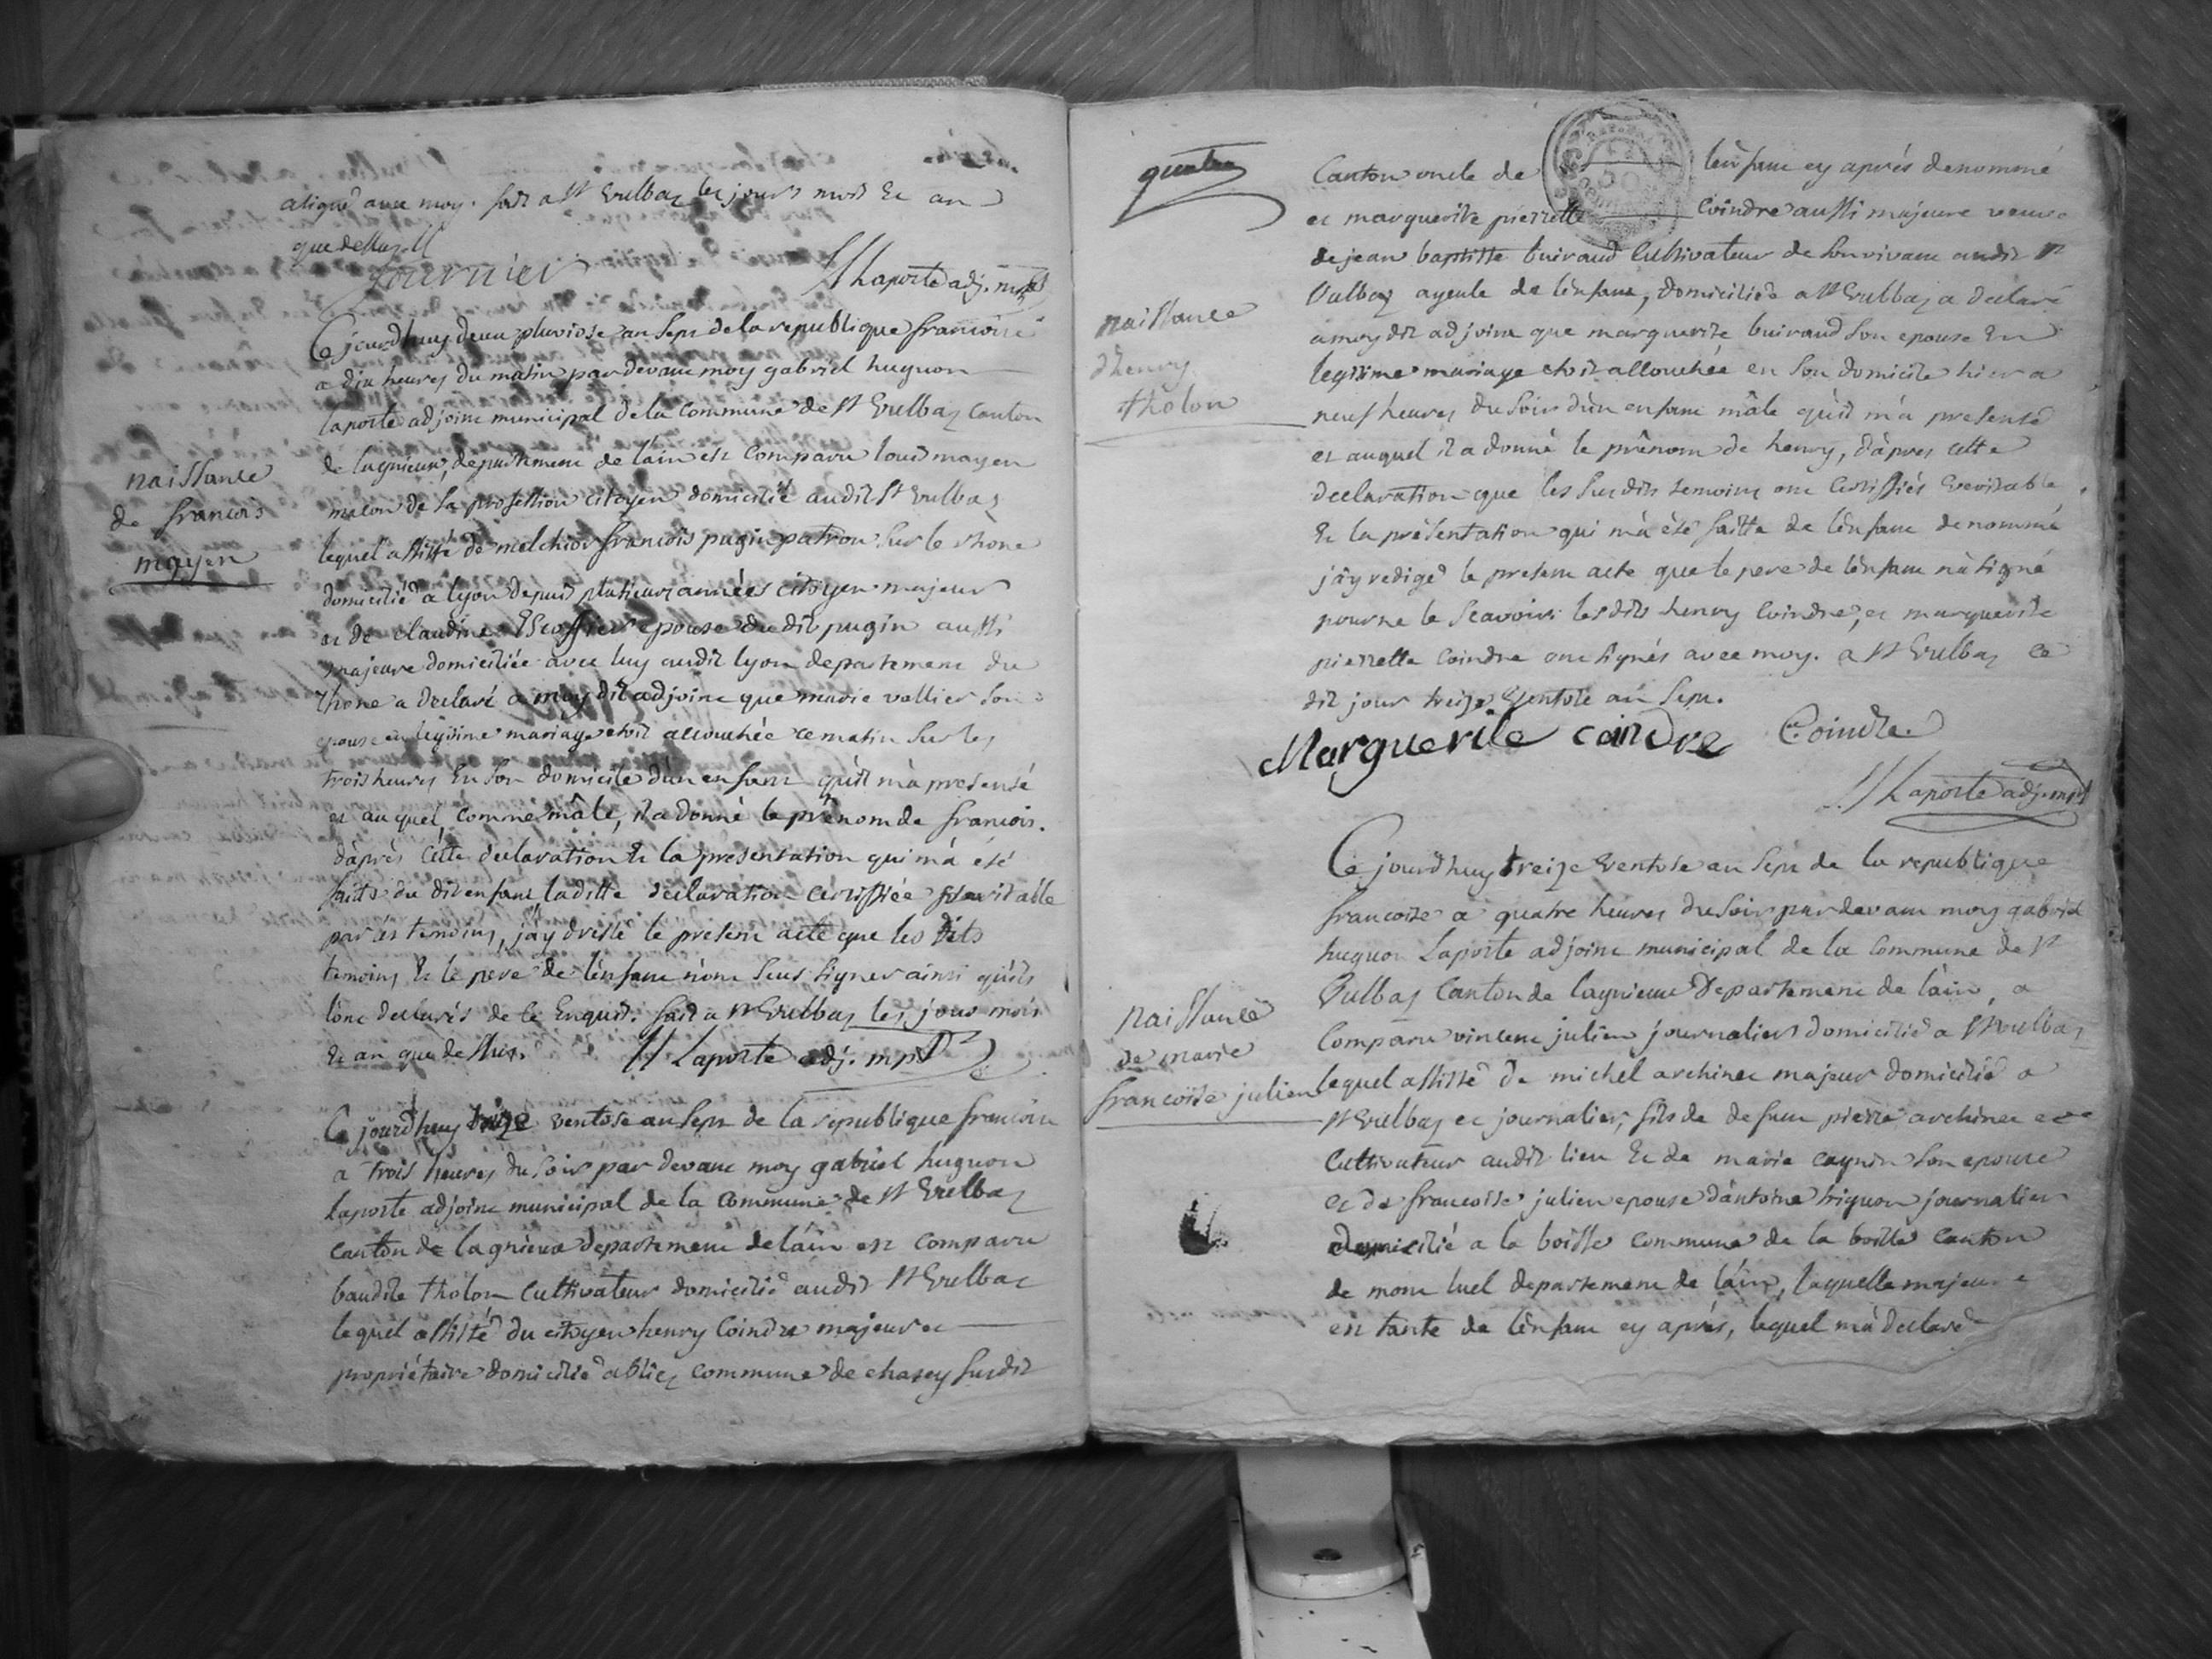 a signé avec moy. fait a St Vulbaz les jours mois Et an
que dessus
fournier
H Laporte adj. mpal
Ce jourd'huy deux pluviose an Sept de la republique francoise
a dix heures du matin par devant moy gabriel huguon
laporte adjoint municipal de la Commune de St Vulbaz Canton
de lagnieux, departement de l'ain est Comparu louis moyen
naissance
de francois
moyen
macon de sa profession citoyen domicilié audit St Vulbaz
lequel assisté de melchior francois pugin patron sur le rhone
domicilié a lyon depuis plusieurs années citoyen majeur
et de claudine Escoffier epouse du dit pugin aussi
majeure domiciliée avec luy audit lyon departement du
rhone a declaré a moy dit adjoint que marie vallier son
epouse en legitime mariage etoit accouchée ce matin sur les
trois heures En son domicile d'un enfant qu'il m'a presenté
et auquel, comme mâle, il a donné le prénom de francois.
d'après cette declaration Et la presentation qui m'a été
faite du dit enfant laditte declaration certiffiée veritable
par les temoins, j'ay dressé le present acte que les dits
temoins Et le pere de l'enfant n'ont seus signer ainsi qu'ils
l'ont declarés de ce Enquis. fait a St Vulbaz les jour mois
Et an que dessus. H Laporte adj. mpal
Ce jourd'huy treize ventose an Sept de la republique francoise
a trois heures du soir par devant moy gabriel huguon
laporte adjoint municipal de la commune de St Vulbaz
canton de lagnieux departement de l'ain est comparu
baudile tholon cultivateur domicilié audit St Vulbaz
lequel assisté du citoyen henry Coindre majeur et
propriétaire domicilié a bliez commune de chazey susdit
quatre
Canton oncle de l'enfant cy après denommé
et marguerite pierrette Coindre aussi majeure veuve
de jean baptiste buiraud Cultivateur de son vivant audit St
Vulbaz ayeule de l'enfant, domiciliée a St Vulbaz a declaré
naissance
d'henry
tholon
a moy dit adjoint que marguerite buiraud son epouse En
legitime mariage etoit accouchée en son domicile hier a
neuf heures du soir d'un enfant mâle qu'il m'a presenté
et auquel il a donné le prénom de henry, d'après cette
declaration que les susdits temoins ont certiffiés veritable
Et la présentation qui m'a été faitte de l'enfant denommé
j'ay redigé le present acte que le pere de l'enfant n'a signé
pour ne le scavoir. les dits henry Coindre, et marguerite
pierrette Coindre ont signés avec moy. a St Vulbaz ce
dit jour treize Ventose an Sept.
Marguerite coindre Coindre
H Laporte adj. mpal
Ce jourd'huy treize Ventose an Sept de la republique
francoise a quatre heures du soir par devant moy gabriel
huguon Laporte adjoint municipal de la Commune de St
Vulbaz Canton de lagnieux Departement de l'ain, a
naissance
de marie
francoise julien
Comparu vincent julien journalier domicilié a St Vulbaz
lequel assisté de michel archinet majeur domicilié a
St Vulbaz et journalier, fils de defunt pierre archinet
Cultivateur audit lieu Et de marie cagnin son epouse
et de francoise julien epouse d'antoine huguon journalier
domicilié a la boisse commune de la boisse canton
de mont luel departement de l'ain, laquelle majeure
est tante de l'enfant cy après, lequel m'a declaré